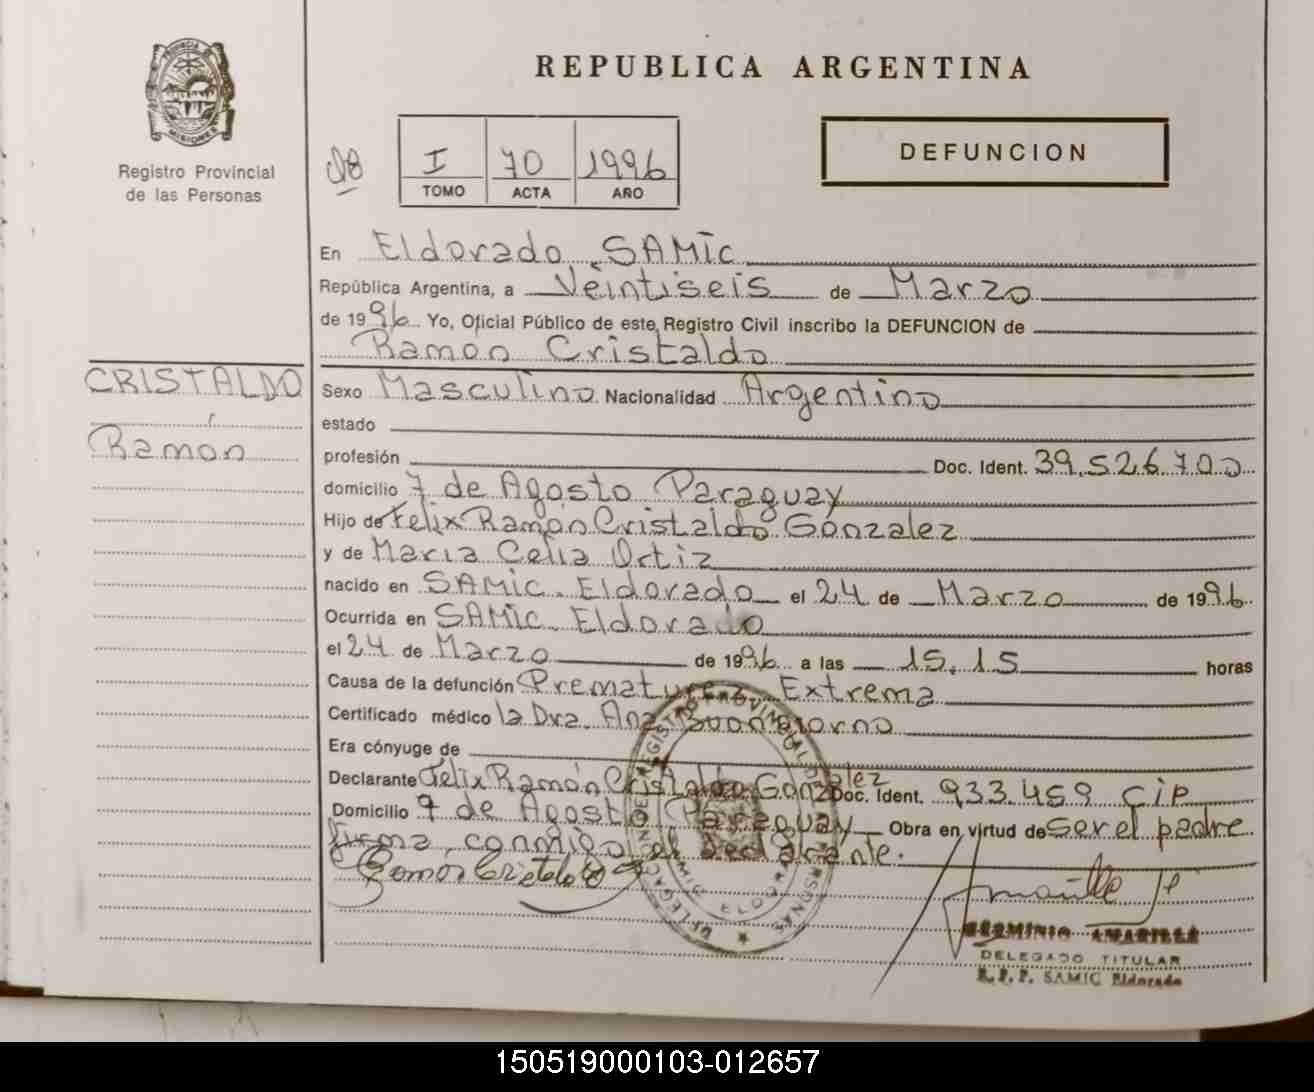 REPUBLICA ARGENTINA
PROVINCIA DE
MISIONES
Registro Provincial
de las Personas
I 70 1996
TOMO ACTA AÑO
DEFUNCION
En Eldorado, SAMIC
República Argentina, a Veintiseis de Marzo
de 1996 Yo, Oficial Público de este Registro Civil inscribo la DEFUNCION de
Ramón Cristaldo
CRISTALDO
Ramón
Sexo Masculino Nacionalidad Argentino
estado
profesión Doc. Ident. 39.526.700
domicilio 7 de Agosto Paraguay
Hijo de Felix Ramón Cristaldo Gonzalez
y de Maria Celia Ortiz
nacido en SAMIC. Eldorado el 24 de Marzo de 1996
Ocurrida en SAMIC. Eldorado
el 24 de Marzo de 1996 a las 15.15 horas
Causa de la defunción Prematurez Extrema
Certificado médico la Dra. Ana Buongiorno
Era cónyuge de
Declarante Felix Ramón Cristaldo Gonzalez Doc. Ident. 933.459 CIP
Domicilio 7 de Agosto Paraguay Obra en virtud de ser el padre
Firma conmigo el Declarante.
Ramón Cristaldo G
HERMINIO AMARILLA
DELEGADO TITULAR
R.P.P. SAMIC Eldorado
150519000103-012657